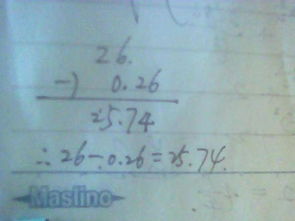 26.
-) 0.26
25.74
∴ 26-0.26=25.74.
Maslino